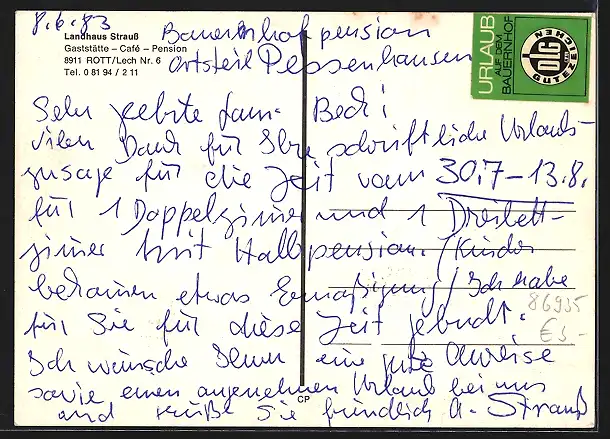 8.6.83
Bauernhofpension
Ortsteil Pessenhausen
Landhaus Strauß
Gaststätte – Café – Pension
8911 ROTT/Lech Nr. 6
Tel. 0 81 94 / 2 11
URLAUB
AUF DEM
BAUERNHOF
DLG
GUTEZEICHEN
Sehr geehrte Fam. Beck!
Vielen Dank für Ihre schriftliche Urlaubs-
zusage für die Zeit vom 30.7–13.8.
für 1 Doppelzimer und 1 Dreibett-
zimer mit Halbpension. /Kinder
bekomen etwas Ermäßigung/ Ich habe
für Sie für diese Zeit gebucht.
Ich wünsche Ihnen eine gute Anreise
sowie einen angenehmen Urlaub bei uns
und grüße Sie freundlich A. Strauß
86935
€3-
CP